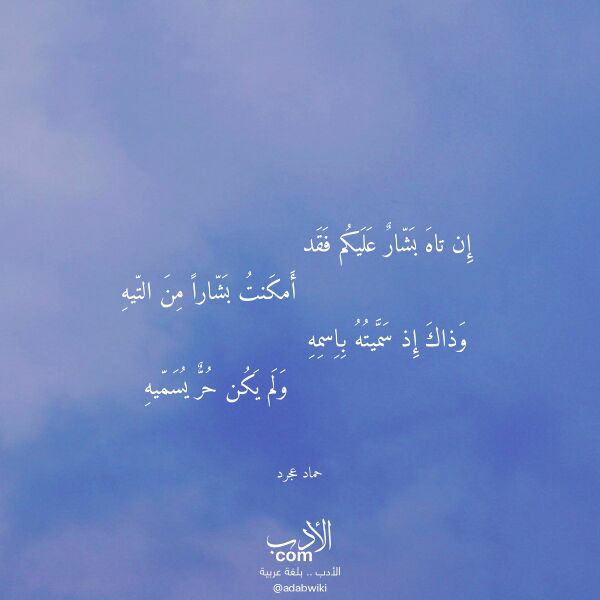 إِن تاهَ بَشّارٌ عَلَيكُم فَقَد
أَمكَنتُ بَشّاراً مِنَ التّيهِ
وَذاكَ إِذ سَمَّيتُهُ بِاِسمِهِ
وَلَم يَكُن حُرٌّ يُسَمّيهِ
حماد عجرد
الأدب
com
الأدب .. بلغة عربية
@adabwiki